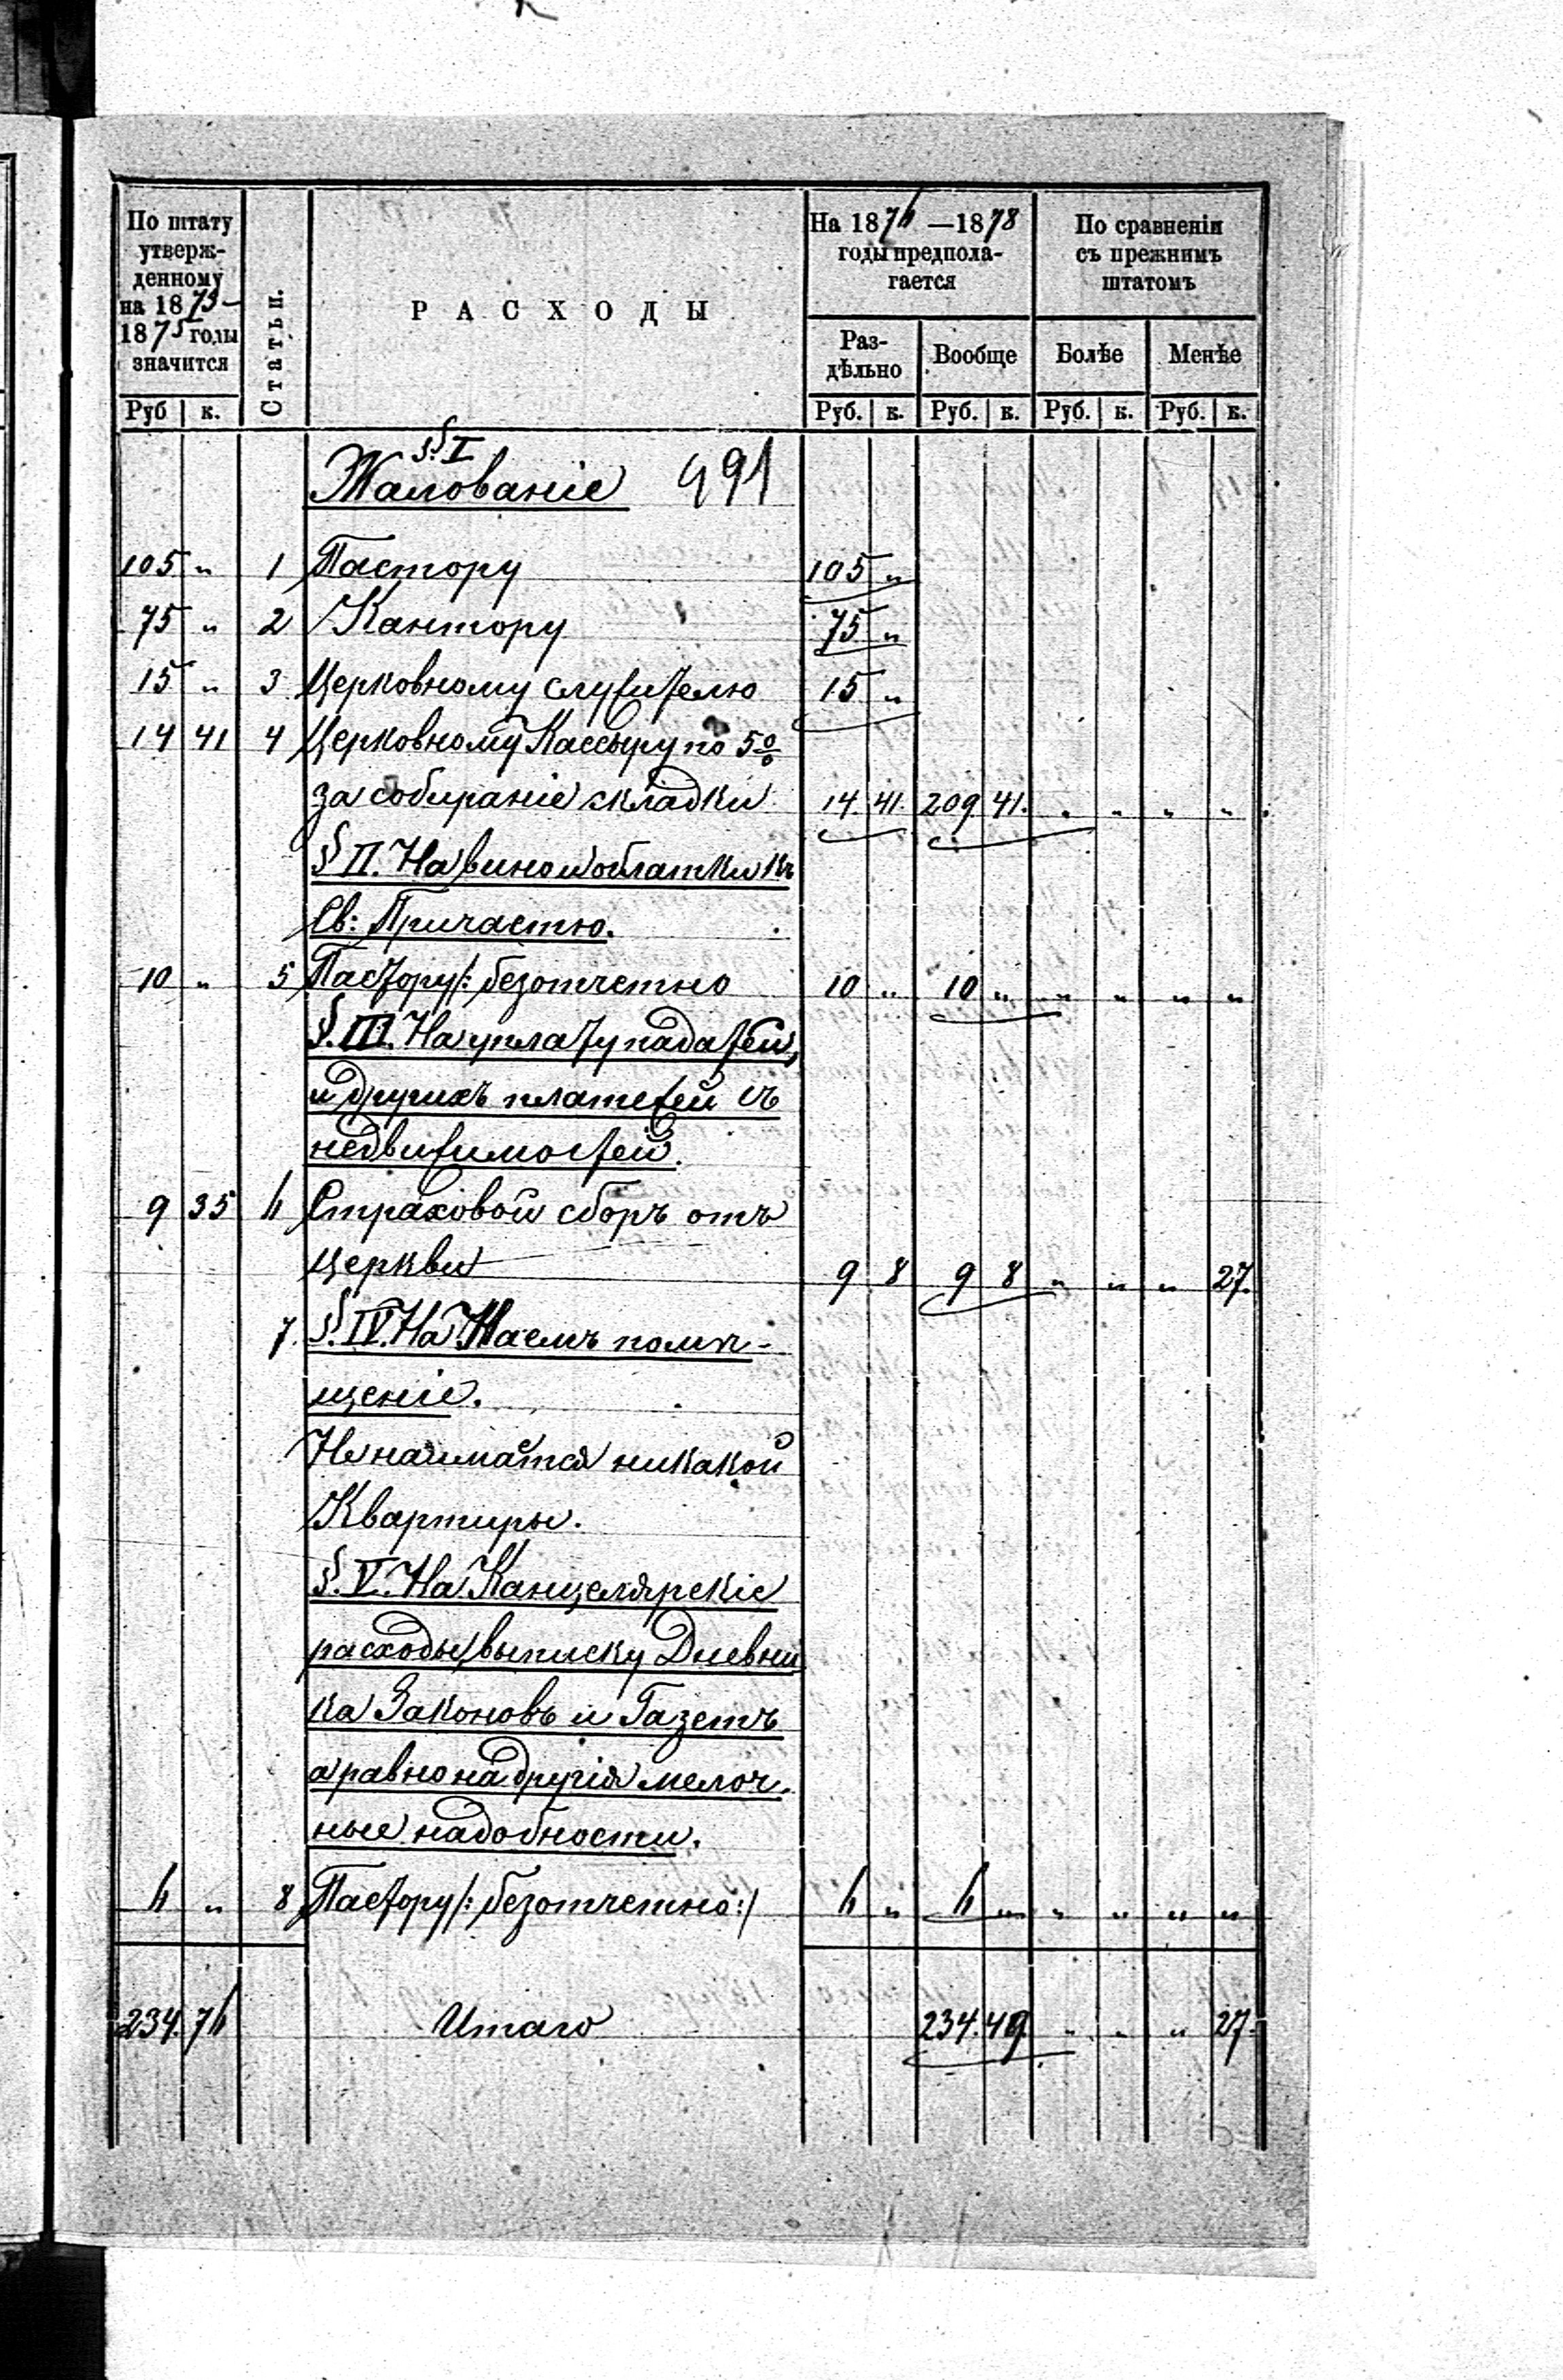 По штату
утверж-
денному
на 1873-
1875 годы
значится
Руб. к.
Статьи.
РАСХОДЫ
На 1876—1878
годы предпола-
гается
Раз-
дѣльно
Вообще
По сравненіи
съ прежнимъ
штатомъ
Болѣе
Менѣе
Руб. к. Руб. к. Руб. к. Руб. к.
§. I
Жалованіе 491
105 " 1 Пастору 105 "
75 " 2 Кантору 75 "
15 " 3 Церковному служителю 15 "
14 41 4 Церковному Кассыру по 5%
за собираніе складки 14. 41. 209 41. " " " "
§ II. На вино и облатки къ
Св: Причастю.
10 " 5 Пастору /: безотчетно 10 " 10 " " " " "
§. III. На уплату податей,
и другихъ платежей съ
недвижимостей.
9 35 6 Страховой сборъ отъ
церкви 9 8 9 8 " " " 27.
7. §. IV. На Наемъ помѣ-
щеніе.
Не наимается никакой
Квартиры.
§. V. На Канцелярскіе
расходы, выписку Дневни
ка Законовъ и Газетъ
а равно на другія мелоч.
ные надобности.
6 " 8 Пастору /: безотчетно :/ 6 " 6 " " " " "
234. 76 Итого 234. 49. " " " 27.